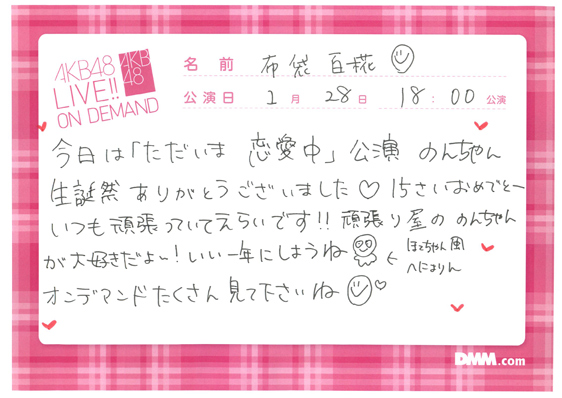 AKB48
LIVE!!
ON DEMAND
AKB
48
名前 布袋 百椛
公演日 1月 28日 18:00 公演
今日は「ただいま 恋愛中」公演 のんちゃん
生誕祭 ありがとうございました♡ 15さいおめでとー
いつも頑張っていてえらいです!! 頑張り屋の のんちゃん
が大好きだよー! いい一年にしようね
ほてちゃん風
へにょりん
オンデマンドたくさん見て下さいね
DMM.com